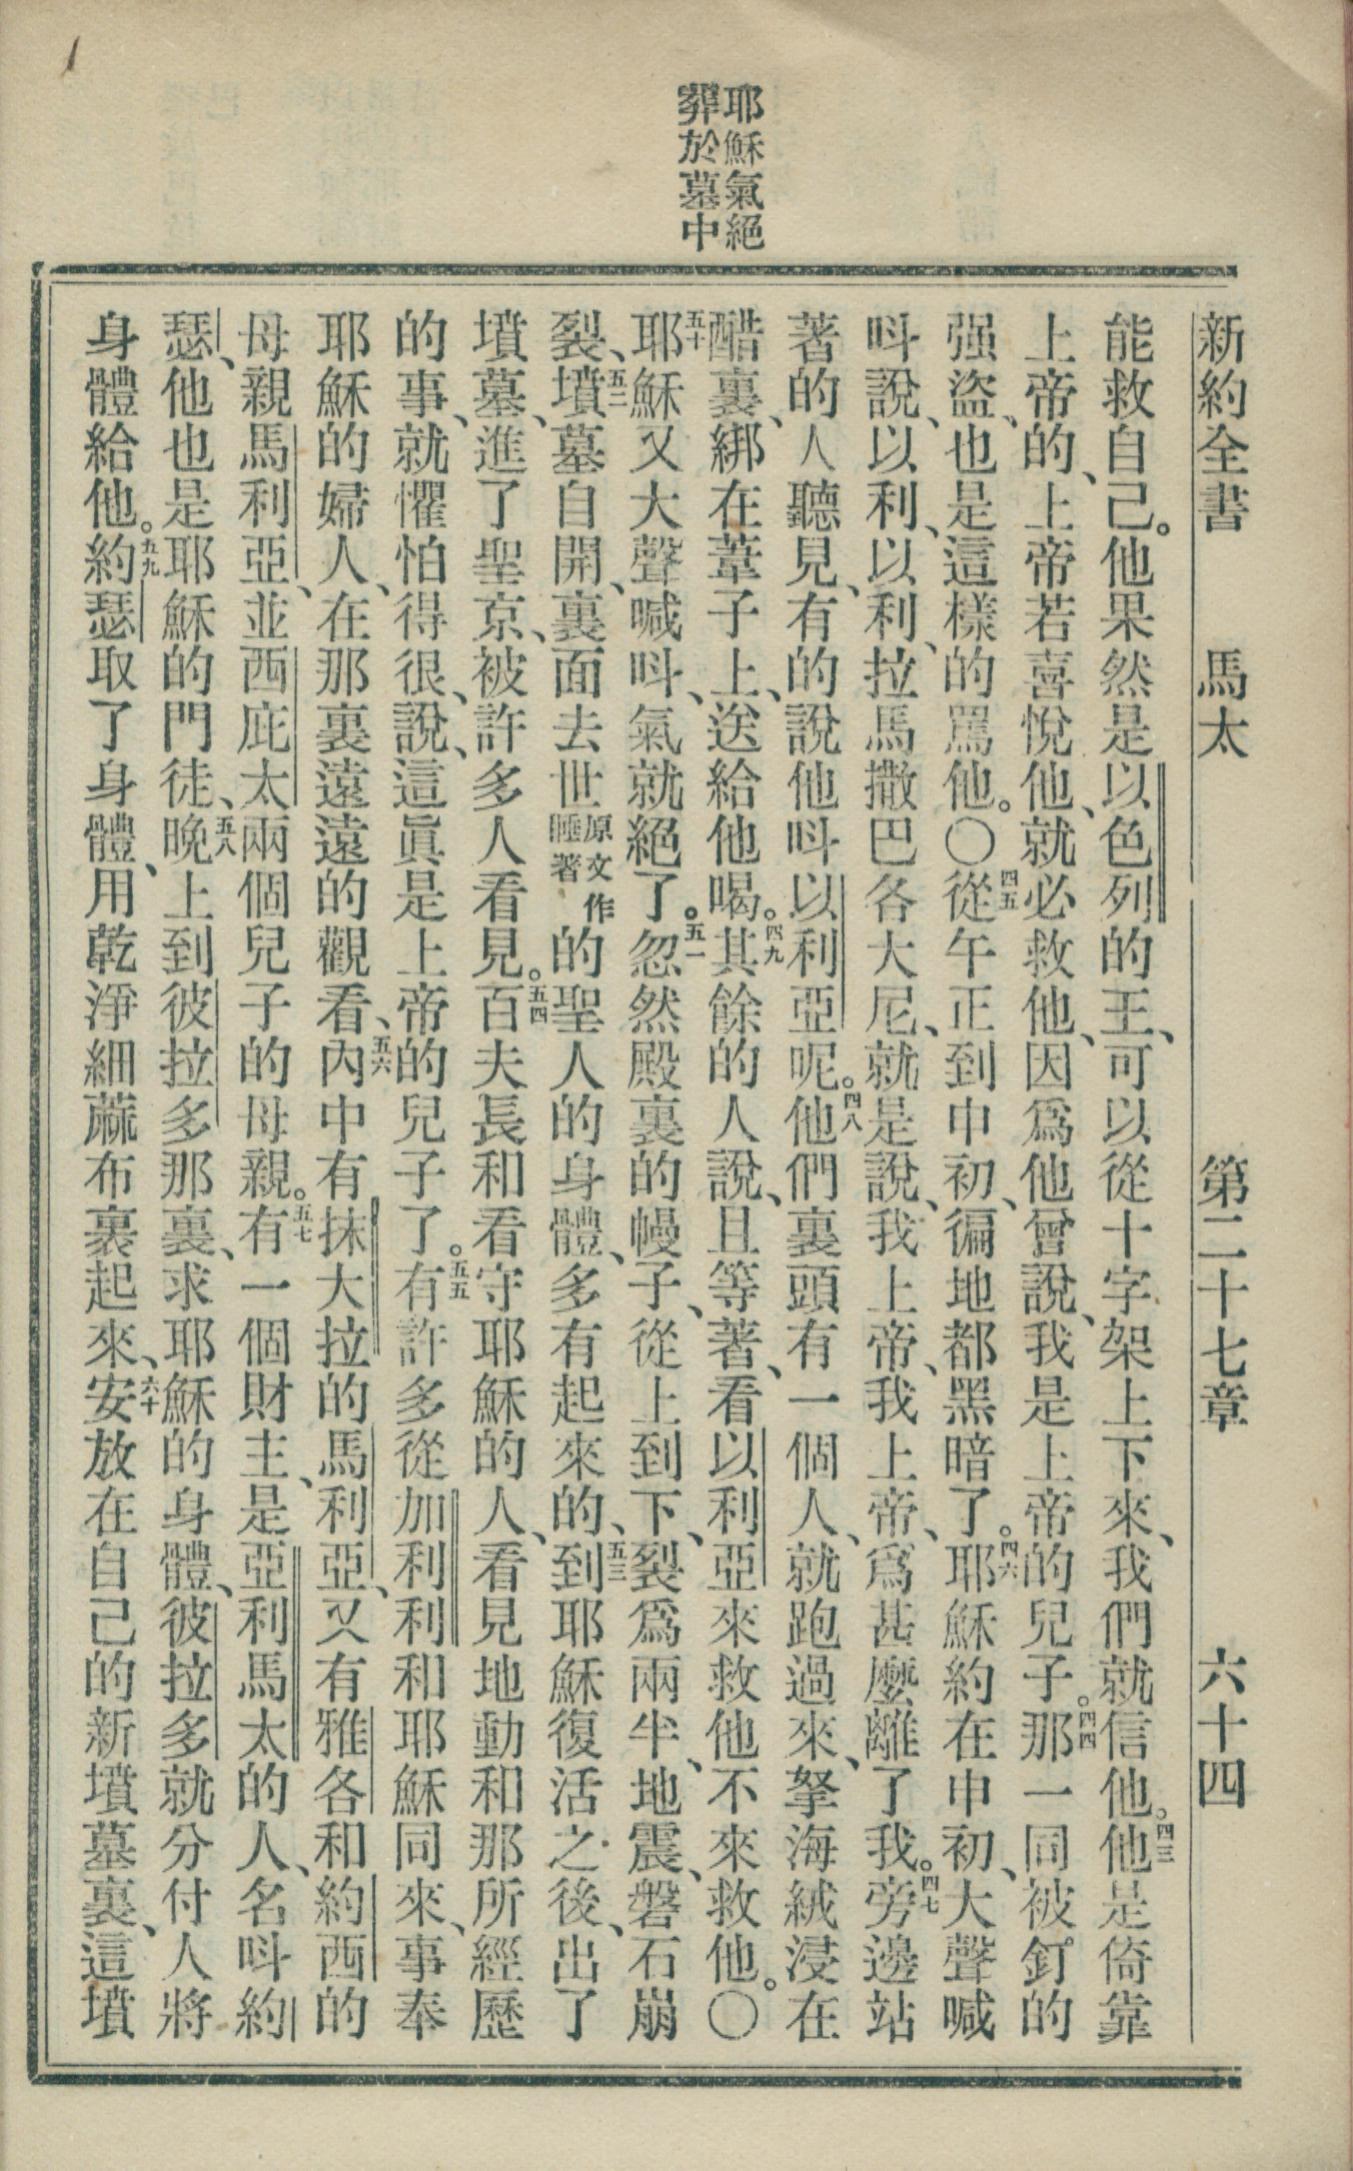 耶穌氣絕
葬於墓中
新約全書 馬太 第二十七章 六十四
能救自己。他果然是以色列的王、可以從十字架上下來、我們就信他。四三他是倚靠
上帝的、上帝若喜悅他、就必救他、因爲他曾說、我是上帝的兒子。四四那一同被釘的
强盜、也是這樣的駡他。〇四五從午正到申初、徧地都黑暗了。四六耶穌約在申初、大聲喊
呌說、以利、以利、拉馬撒巴各大尼、就是說、我上帝、我上帝、爲甚麼離了我。四七旁邊站
著的人聽見、有的說他呌以利亞呢。四八他們裏頭有一個人、就跑過來、拏海絨浸在
醋裏、綁在葦子上、送給他喝。四九其餘的人說、且等著、看以利亞來救他不來救他。〇
五十耶穌又大聲喊呌、氣就絕了。五一忽然殿裏的幔子、從上到下、裂爲兩半、地震、磐石崩
裂、五二墳墓自開、裏面去世原文作睡著的聖人的身體、多有起來的、五三到耶穌復活之後、出了
墳墓、進了聖京、被許多人看見。五四百夫長和看守耶穌的人、看見地動和那所經歷
的事、就懼怕得很、說、這眞是上帝的兒子了。五五有許多從加利利和耶穌同來、事奉
耶穌的婦人、在那裏遠遠的觀看、五六內中有抹大拉的馬利亞、又有雅各和約西的
母親馬利亞、並西庇太兩個兒子的母親。五七有一個財主、是亞利馬太的人、名呌約
瑟、他也是耶穌的門徒、五八晚上到彼拉多那裏、求耶穌的身體、彼拉多就分付人將
身體給他。五九約瑟取了身體、用乾淨細蔴布裹起來、六十安放在自己的新墳墓裏、這墳